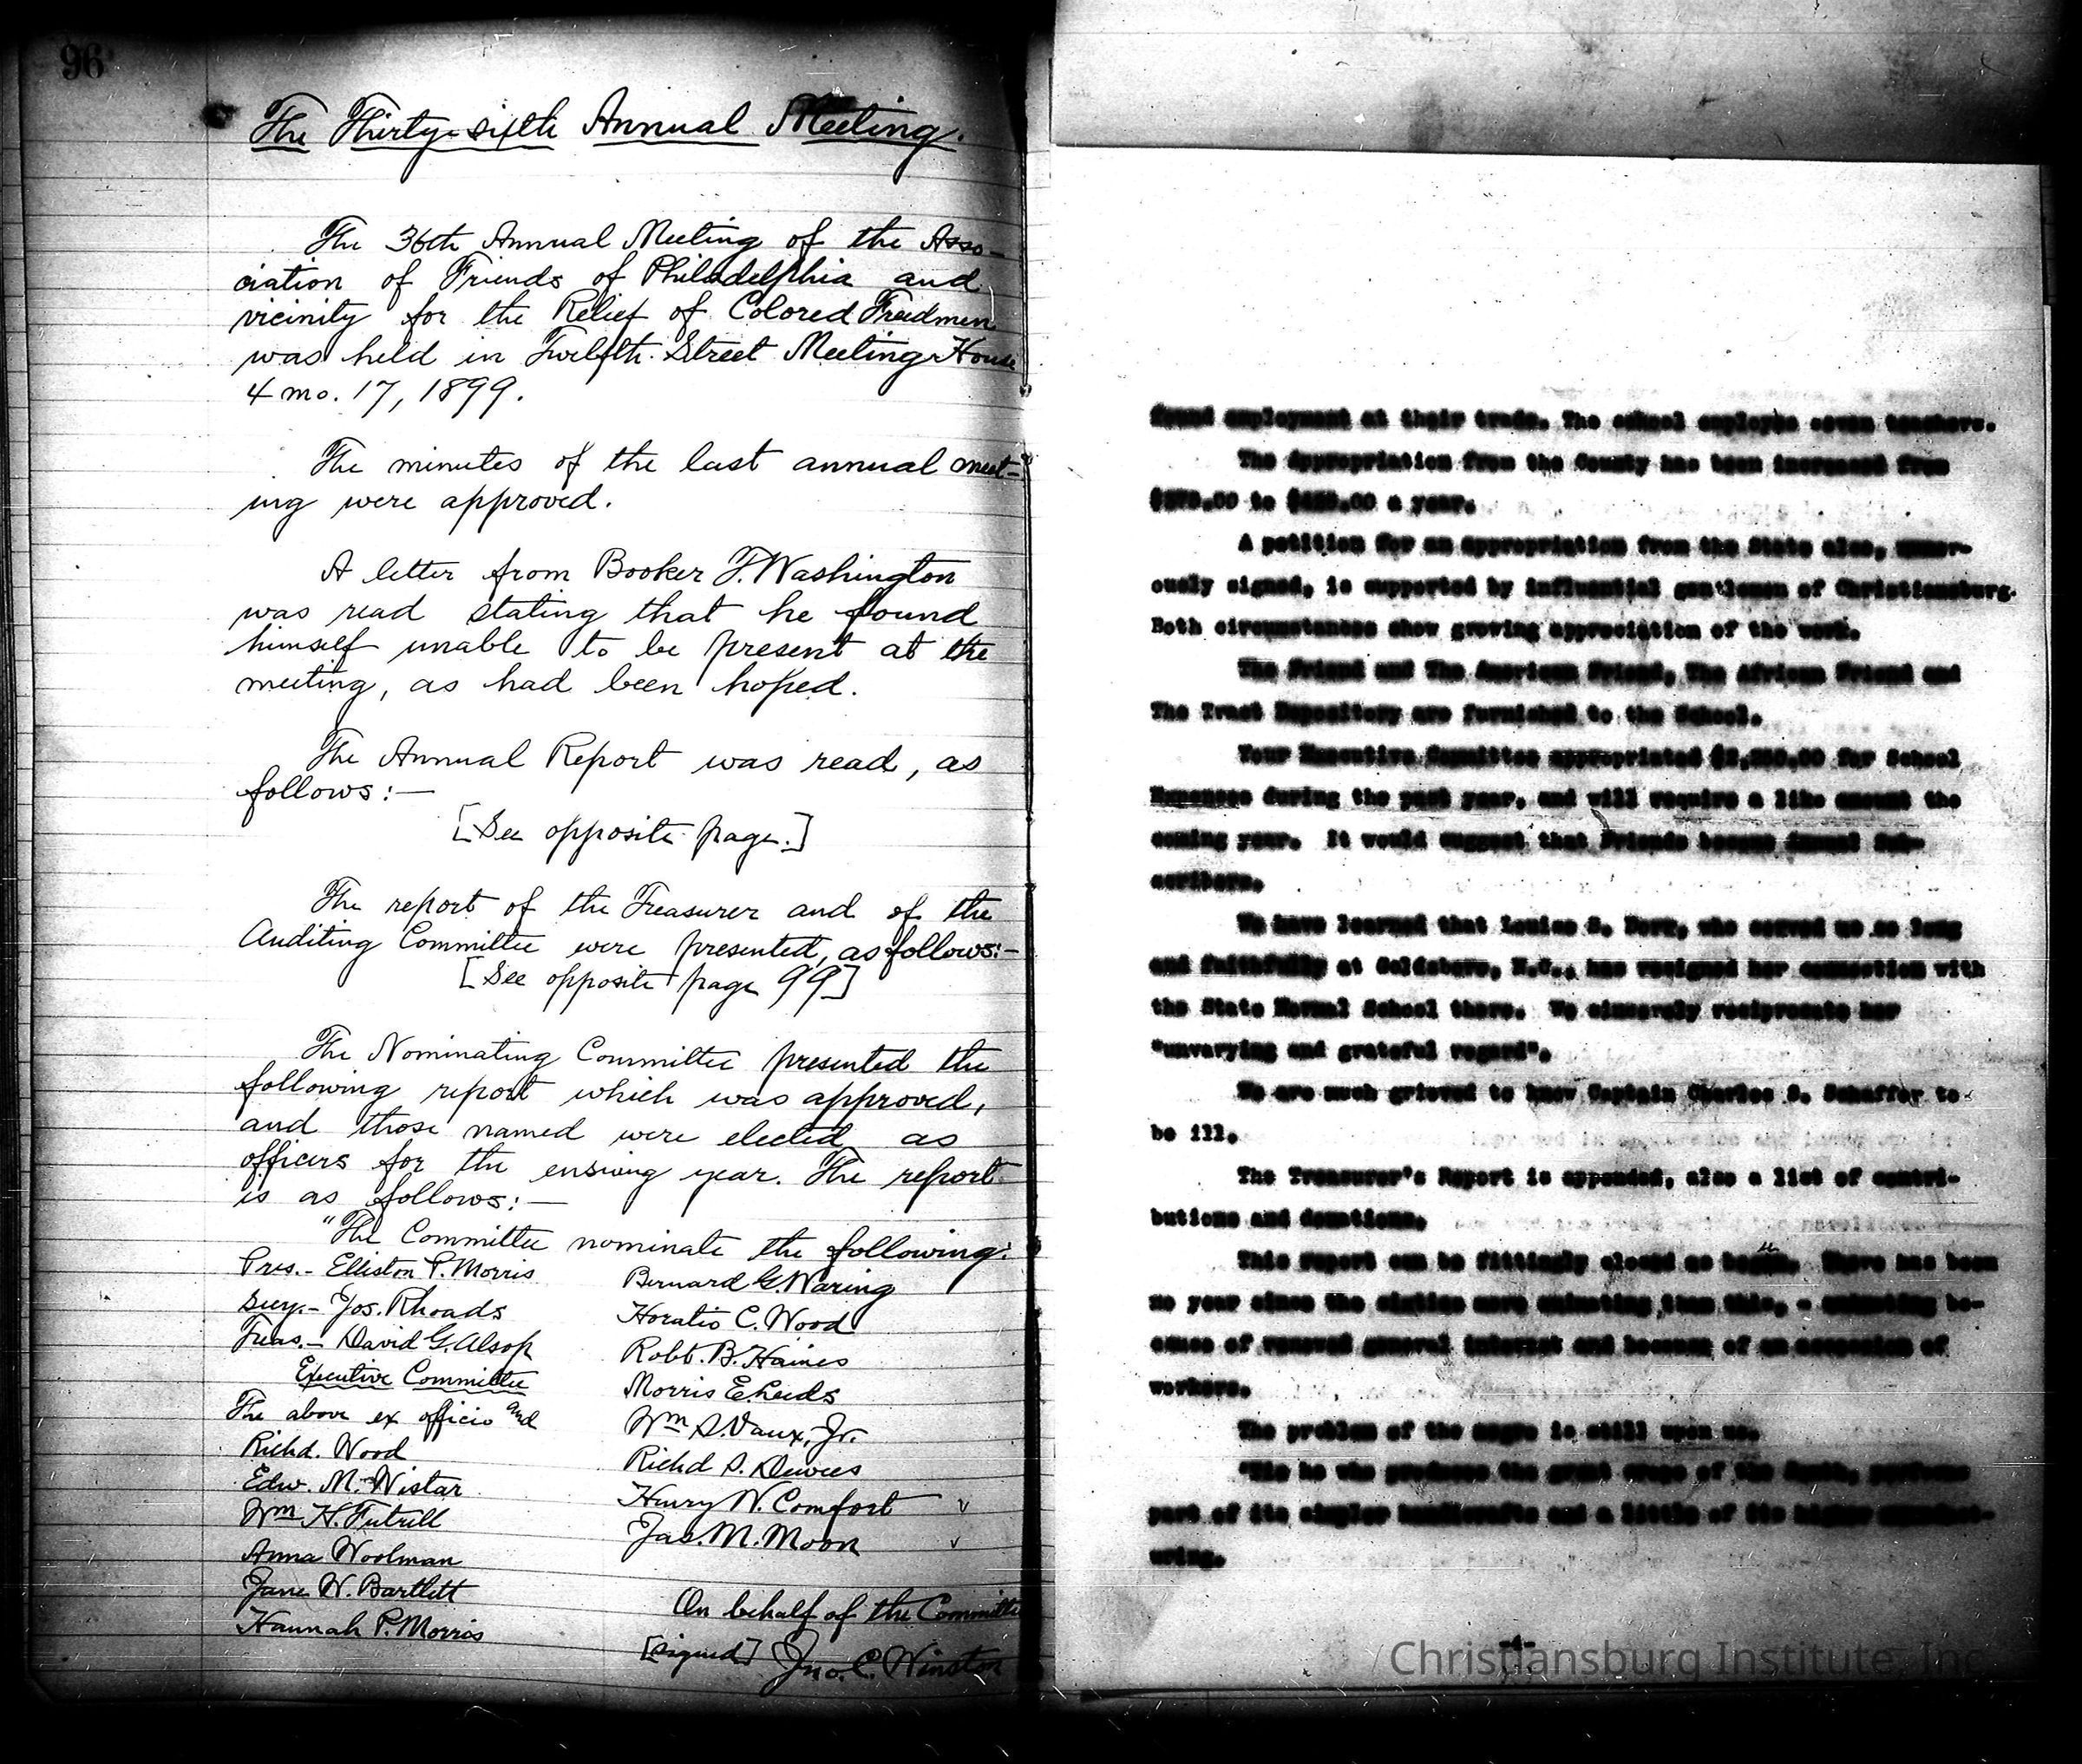 96
The Thirty-sixth Annual Meeting.
The 36th Annual Meeting of the Asso-
ciation of Friends of Philadelphia and
vicinity for the Relief of Colored Freedmen
was held in Twelfth Street Meeting House
4 mo. 17, 1899.
The minutes of the last annual meet-
ing were approved.
A letter from Booker T. Washington
was read stating that he found
himself unable to be present at the
meeting, as had been hoped.
The Annual Report was read, as
follows:—
[See opposite page.]
The report of the Treasurer and of the
Auditing Committee were presented, as follows:—
[See opposite page 99]
The Nominating Committee presented the
following report which was approved,
and those named were elected as
officers for the ensuing year. The report
is as follows:—
"The Committee nominate the following:
Pres.- Elliston P. Morris
Secy.- Jos. Rhoads
Treas.- David G. Alsop
Executive Committee
The above ex officio and
Richd. Wood
Edw. M. Wistar
Wm H. Futrell
Anna Woolman
Jane W. Bartlett
Hannah P. Morris
Bernard G. Waring
Horatio C. Wood
Robt. B. Haines
Morris E. Leeds
Wm S. Vaux, Jr.
Richd S. Dewees
Henry W. Comfort
Jas. M. Moon
On behalf of the Committee
[signed] Jno. C. Winston
found employment at their trade. The school employs seven teachers.
The Appropriation from the County has been increased from
to a year.
A petition for an appropriation from the State also, numer-
ously signed, is supported by influential gentlemen of Christiansburg.
Both circumstances show growing appreciation of the work.
The Friend and The American Friend, The African Friend and
The Tract Repository are furnished to the School.
Your Executive Committee appropriated for School
Expenses during the past year, and will require a like amount the
coming year. It would suggest that Friends become Annual Sub-
scribers.
We have learned that Louise S. who served us so long
and faithfully at Goldsboro, N.C., has resigned her connection with
the State Normal School there. We sincerely reciprocate her
"unvarying and grateful regard".
We are much grieved to know Captain Charles S. Schaffer to
be ill.
The Treasurer's Report is appended, also a list of contri-
butions and donations.
This report can be fittingly closed as begun. There has been
no year since the sixties more animating than this, - animating be-
cause of renewed general interest and because of an accession of
workers.
The problem of the negro is still upon us.
"Tis he who produces the great crops of the South, performs
part of its simpler handicrafts and a little of its higher
-4-
Christiansburg Institute, Inc